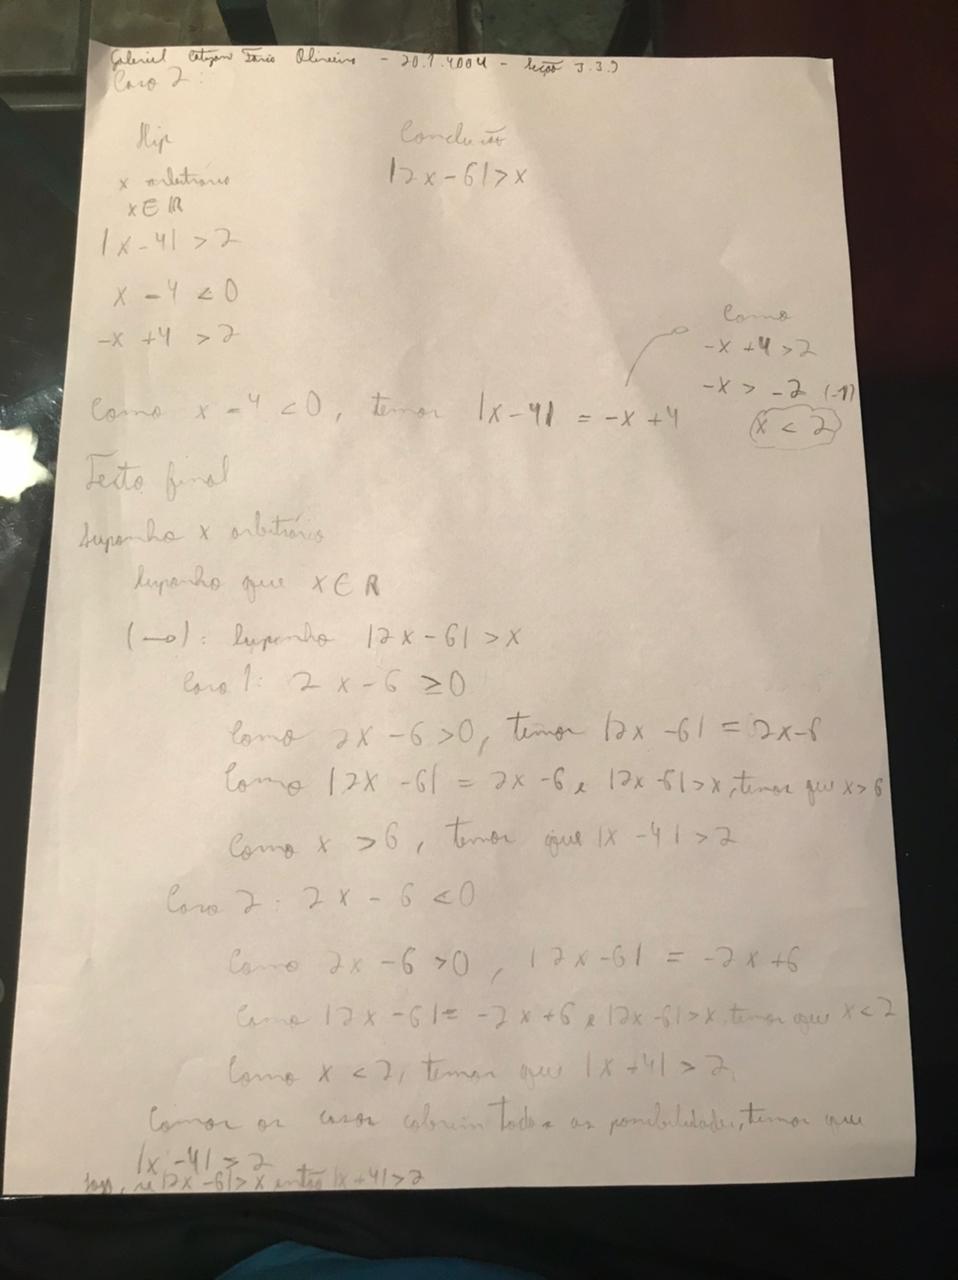 Gabriel Faria Oliveira - 20.1.4004 - Seção 3.3.2
Caso 2:
Hip Conclusão
x arbitrário |2x-6|>x
x∈ℝ
|x-4|>2
x-4<0
-x+4>2
Como
-x+4>2
-x>-2 (-1)
x<2
Como x-4<0, temos |x-4| = -x+4
Texto final
Suponha x arbitrário
Suponha que x∈ℝ
(→): Suponha |2x-6|>x
Caso 1: 2x-6≥0
Como 2x-6>0, temos |2x-6| = 2x-6
Como |2x-6| = 2x-6 e |2x-6|>x, temos que x>6
Como x>6, temos que |x-4|>2
Caso 2: 2x-6<0
Como 2x-6>0, |2x-6| = -2x+6
Como |2x-6| = -2x+6 e |2x-6|>x, temos que x<2
Como x<2, temos que |x+4|>2.
Como os casos cobrem todas as possibilidades, temos que
|x-4|>2
Logo, se |2x-6|>x então |x+4|>2